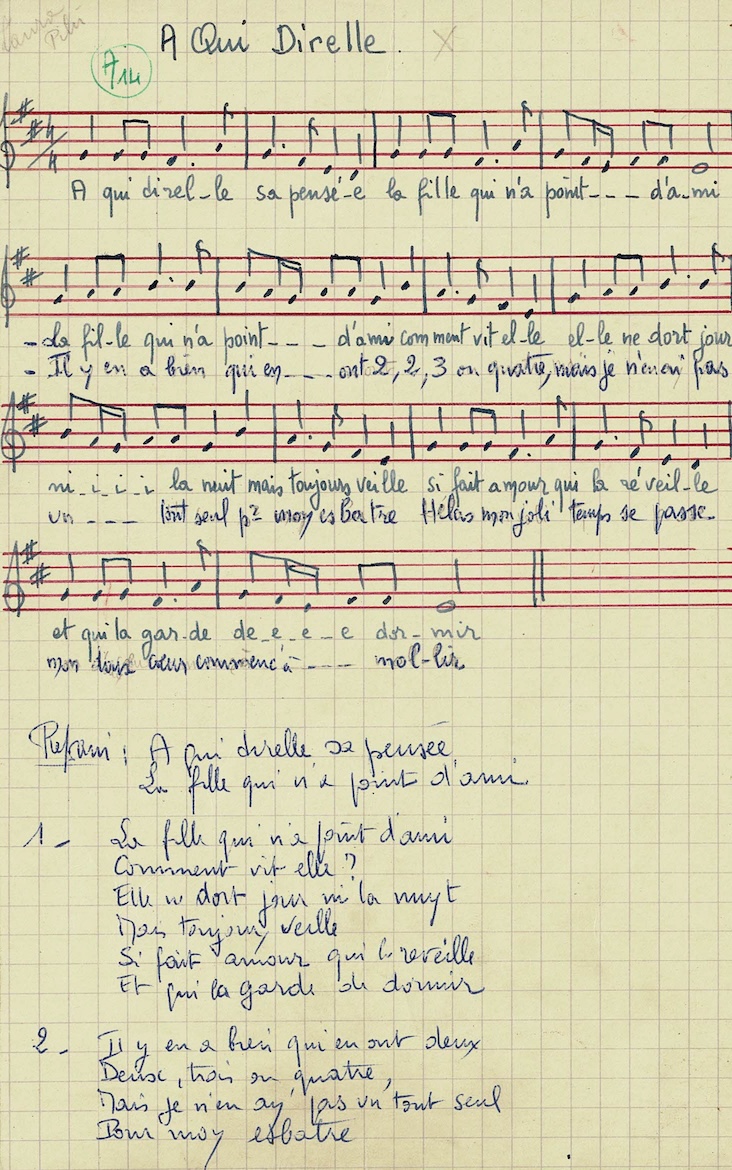 A Qui Direlle.
A14
4/4
A qui direl-le sa pensé-e la fille qui n'a point--- d'a-mi
-La fil-le qui n'a point--- d'ami comment vit el-le el-le ne dort jour
- Il y en a bien qui en--- ont 2, 2, 3 ou quatre, mais je n'en ai pas
ni-i-i-i la nuit mais toujours veille si fait amour qui la réveil-le
un --- tout seul pr moy esbatre Hélas mon joli temps se passe-
et qui la gar-de de-e-e-e dor-mir
mon doux cœur commence à ---- mol-lir
Refrain : A qui direlle sa pensée
La fille qui n'a point d'ami
1- La fille qui n'a point d'ami
Comment vit elle ?
Elle ne dort jour ni la nuyt
Mais toujours veille
Si fait amour qui la réveille
Et qui la garde de dormir
2- Il y en a bien qui en ont deux
Deux, trois ou quatre,
Mais je n'en ay pas un tout seul
Pour moy esbatre